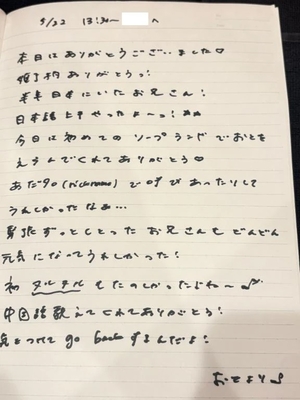 3/22 13:30〜 へ
本日はありがとうございました♡
指名ありがとうっ!
半年日本にいたお兄さん!
日本語上手やったよ〜っ!
今日は初めてのソープランドでおとを
えらんでくれてありがとう♡
あだ名(nickname)で呼びあったりして
うれしかったなぁ…
緊張ずっとしとったお兄さんもどんどん
元気になってうれしかった!
初ヌルヌルもたのしかったよね〜♪
中国語教えてくれてありがとう!
気をつけて go back するんだよ!
おとより♪